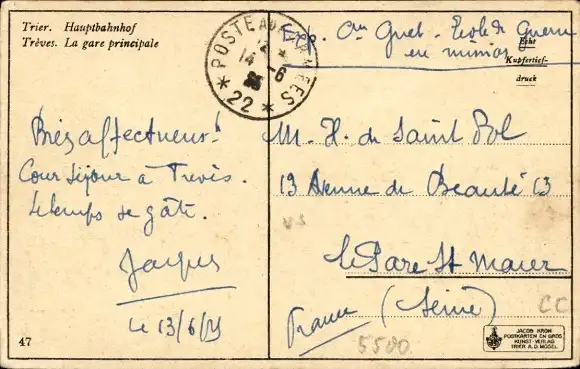 Trier. Hauptbahnhof
Trèves. La gare principale
POSTE AUX ARMÉES
14 -6
* 22 *
Exp. Guet - Ecole de Guerre
en mission
Echt
Kupfertief-
druck
Bien affectueux!
Court séjour à Trèves.
Le temps se gâte.
Jacques
le 13/6/25
M. H. de Saint Pol
13 Avenue de Beauté 13
le Parc St Maur
(Seine)
France
CC
5500
47
JACOB KRON
POSTKARTEN EN GROS
KUNST-VERLAG
TRIER A.D. MOSEL